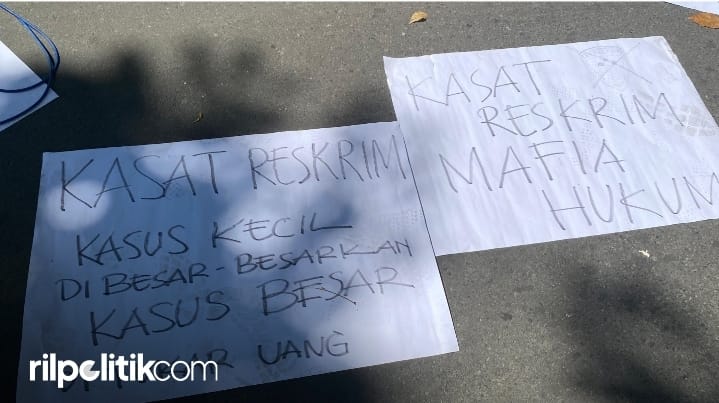 KASAT RESKRIM
KASUS KECIL
DI BESAR-BESARKAN
KASUS BESAR
UANG
KASAT
RESKRIM
MAFIA
HUKUM
rilpolitik.com